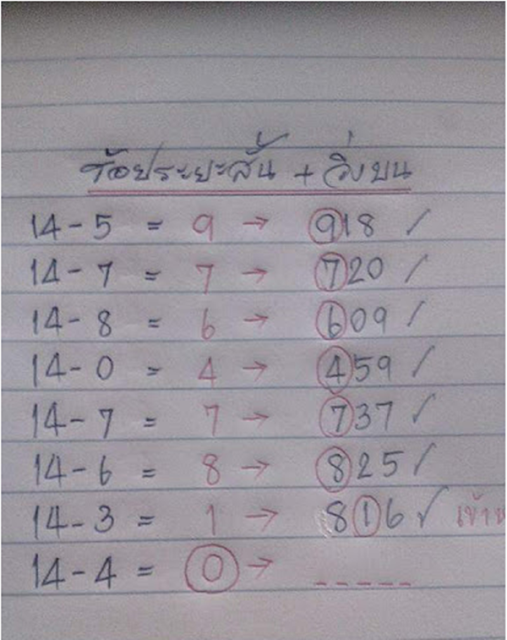 ร้อยระยะสั้น + วิ่งบน
14 - 5 = 9 → 918 ✓
14 - 7 = 7 → 720 ✓
14 - 8 = 6 → 609 ✓
14 - 0 = 4 → 459 ✓
14 - 7 = 7 → 737 ✓
14 - 6 = 8 → 825 ✓
14 - 3 = 1 → 816 ✓
14 - 4 = 0 → -----